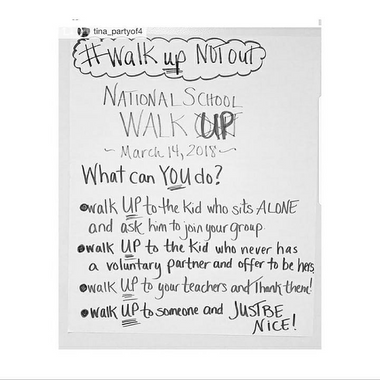 tina_partyof4
#walk up NOT out
NATIONAL SCHOOL
WALK UP
~ March 14, 2018 ~
What can YOU do?
walk UP to the kid who sits ALONE
and ask him to join your group.
walk UP to the kid who never has
a voluntary partner and offer to be hers.
walk UP to your teachers and Thank them!
walk UP to someone and JUST BE
NICE!